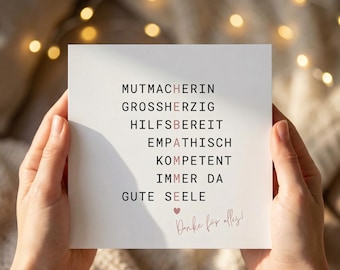 MUTMACHERIN
GROSSHERZIG
HILFSBEREIT
EMPATHISCH
KOMPETENT
IMMER DA
GUTE SEELE
Danke für alles!